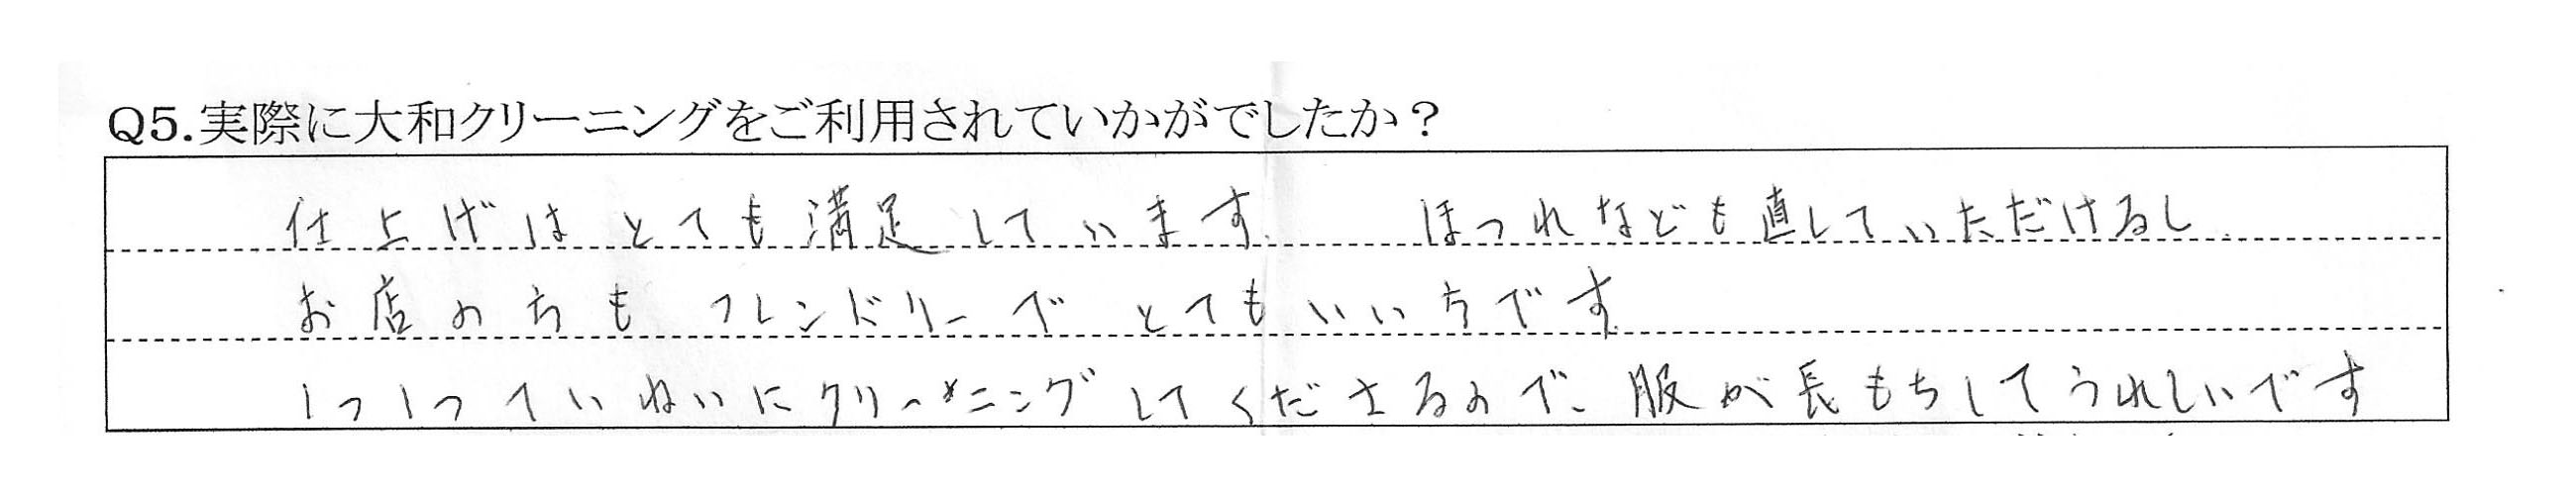 Q5.実際に大和クリーニングをご利用されていかがでしたか？
仕上げはとても満足しています. ほつれなども直していただけるし.
お店の方も フレンドリーで とてもいい方です
1つ1つていねいにクリーニングしてくださるので、服が長もちしてうれしいです